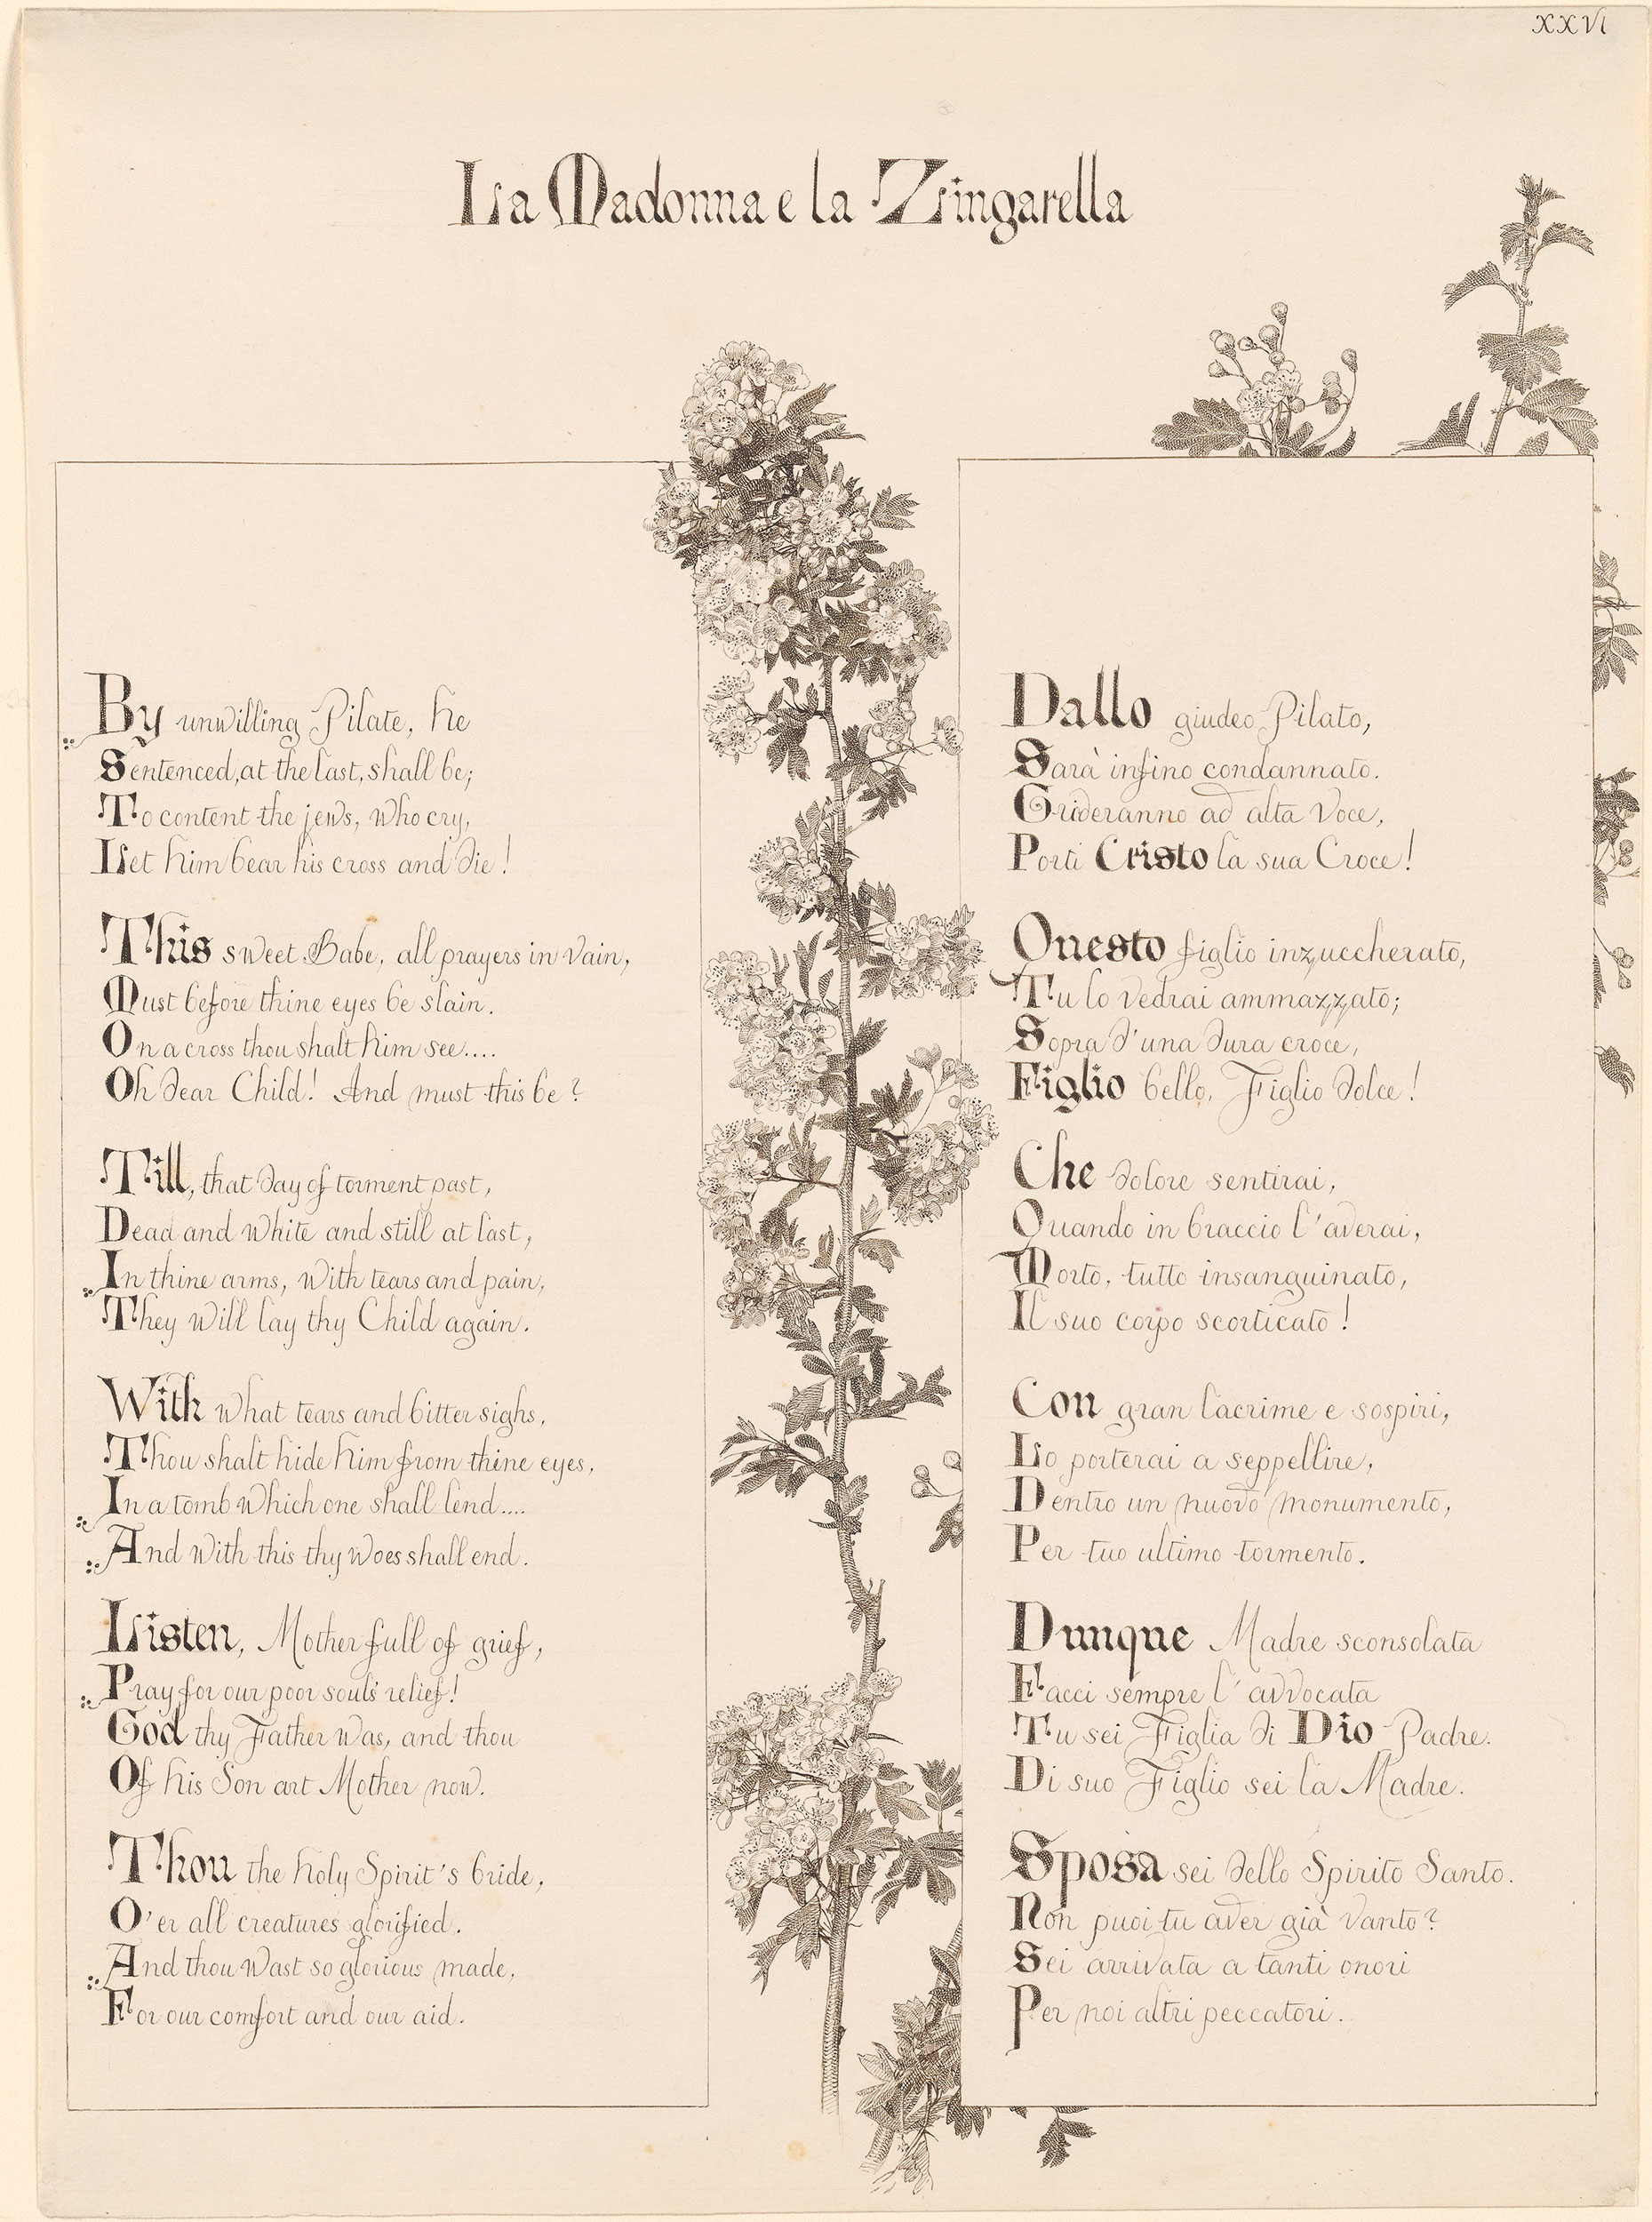 XXVI
La Madonna e la Zingarella
By unwilling Pilate, he
Sentenced, at the last, shall be;
To content the jews, who cry,
Let him bear his cross and die!
This sweet Babe, all prayers in vain,
Must before thine eyes be slain.
On a cross thou shalt him see....
Oh dear Child! And must this be?
Till, that day of torment past,
Dead and white and still at last,
In thine arms, with tears and pain,
They will lay thy Child again.
With what tears and bitter sighs,
Thou shalt hide him from thine eyes,
In a tomb which one shall lend....
And with this thy woes shall end.
Listen, Mother full of grief,
Pray for our poor souls' relief!
God thy Father was, and thou
Of his Son art Mother now.
Thou the holy Spirit's bride,
O'er all creatures glorified.
And thou wast so glorious made,
For our comfort and our aid.
Dallo giudeo Pilato,
Sarà infino condannato.
Grideranno ad alta voce,
Porti Cristo la sua Croce!
Questo figlio inzuccherato,
Tu lo vedrai ammazzato;
Sopra d'una dura croce,
Figlio bello, Figlio dolce!
Che dolore sentirai,
Quando in braccio l'averai,
Morto, tutto insanguinato,
Il suo corpo scorticato!
Con gran lacrime e sospiri,
Lo porterai a seppellire,
Dentro un nuovo monumento,
Per tuo ultimo tormento.
Dunque Madre sconsolata
Facci sempre l'avvocata
Tu sei Figlia di Dio Padre.
Di suo Figlio sei la Madre.
Sposa sei dello Spirito Santo.
Non puoi tu aver già vanto?
Sei arrivata a tanti onori
Per noi altri peccatori.